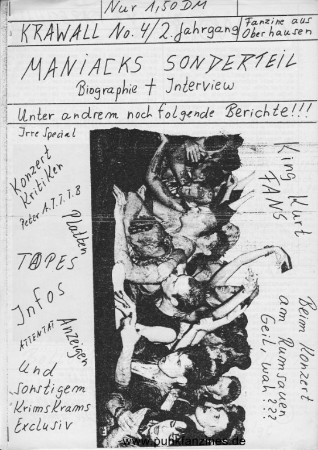 Nur 1,50DM
KRAWALL No. 4/2. Jahrgang
Fanzine aus
Oberhausen
MANIACKS SONDERTEIL
Biographie + Interview
Unter andrem noch folgende Berichte!!!
Irre Special
Konzert
Kritiken
Peter A.T.T.T.B
Platten
TAPES
Infos
ATTENTAT
Anzeigen
Und
sonstigem
KrimsKrams
Exclusiv
King Kurt
FANS
Beim Konzert
am Rumsauen,
Geil, wah???
www.punkfanzines.de